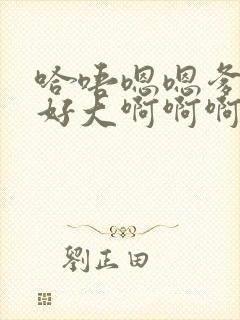 哈唔嗯嗯爹
好大啊啊啊
劉正田